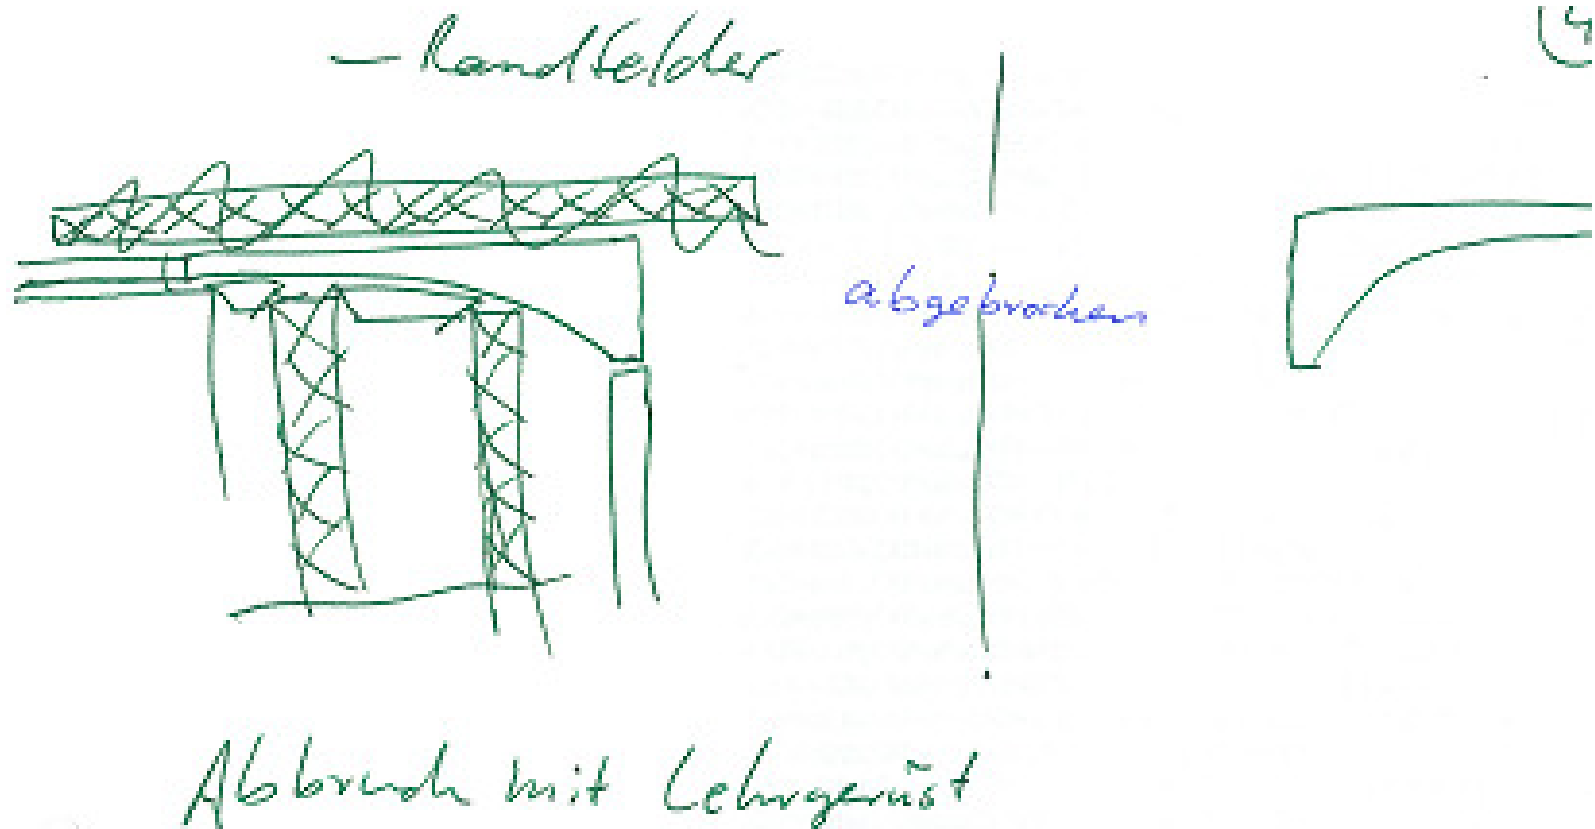 - Randfelder
4
abgebrochen
Abbruch mit Lehrgerüst